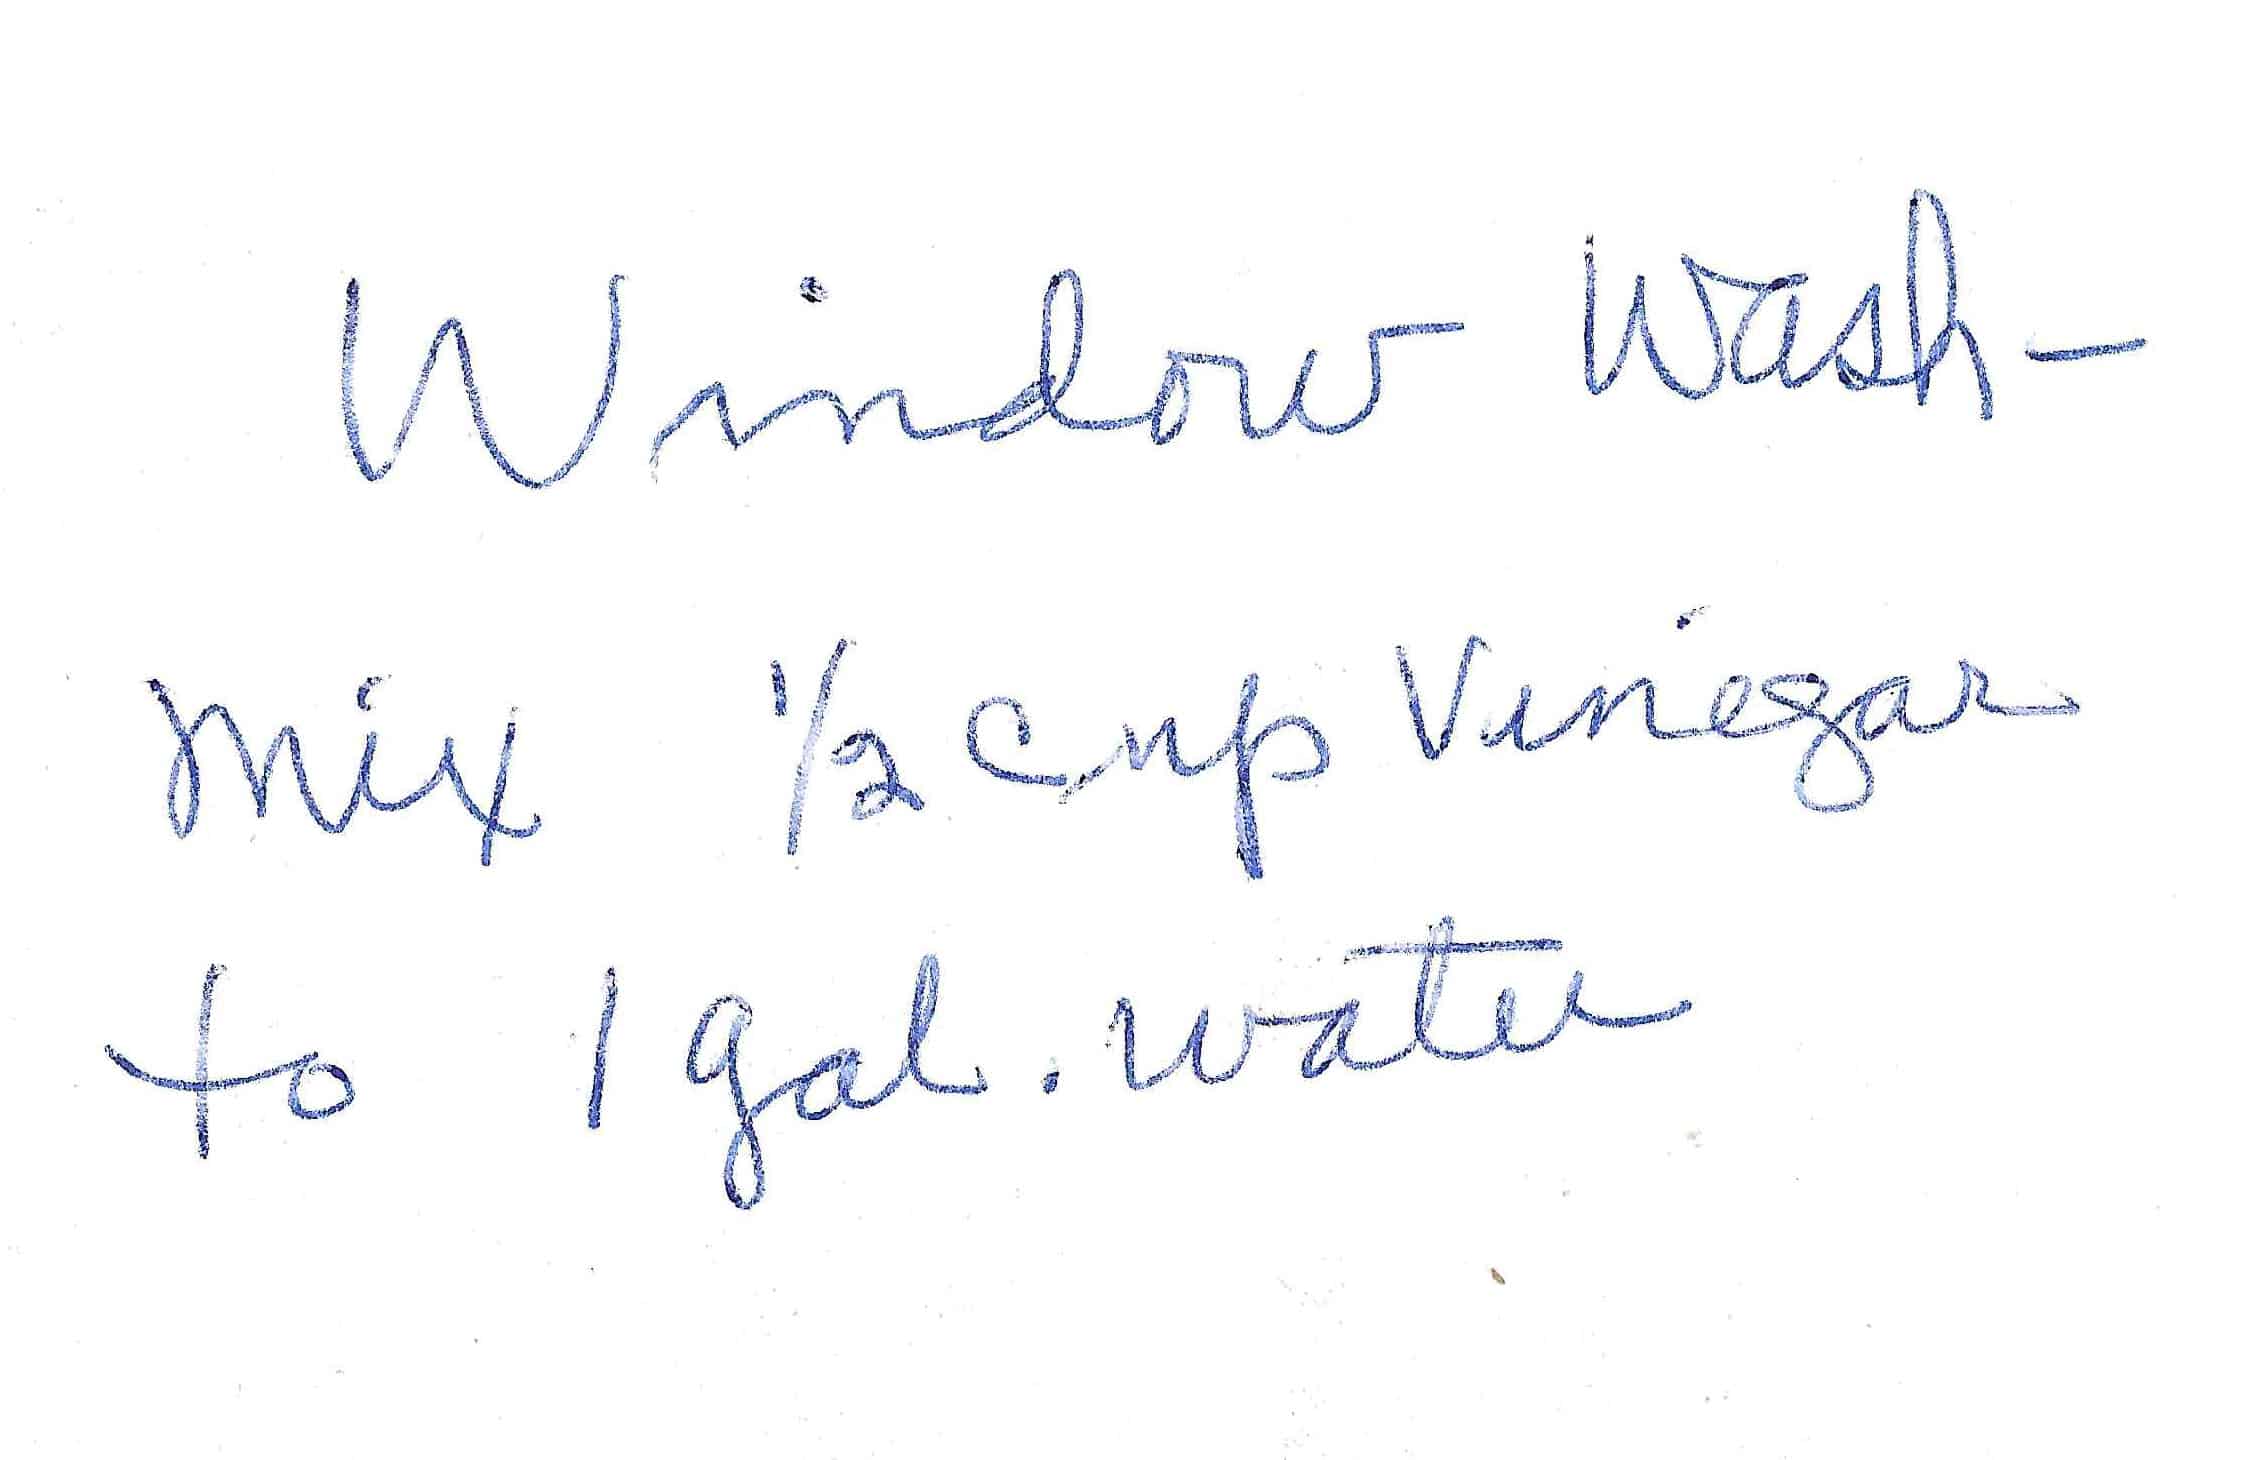 Window Wash-
Mix 1/2 Cup Vinegar
to 1 gal. water